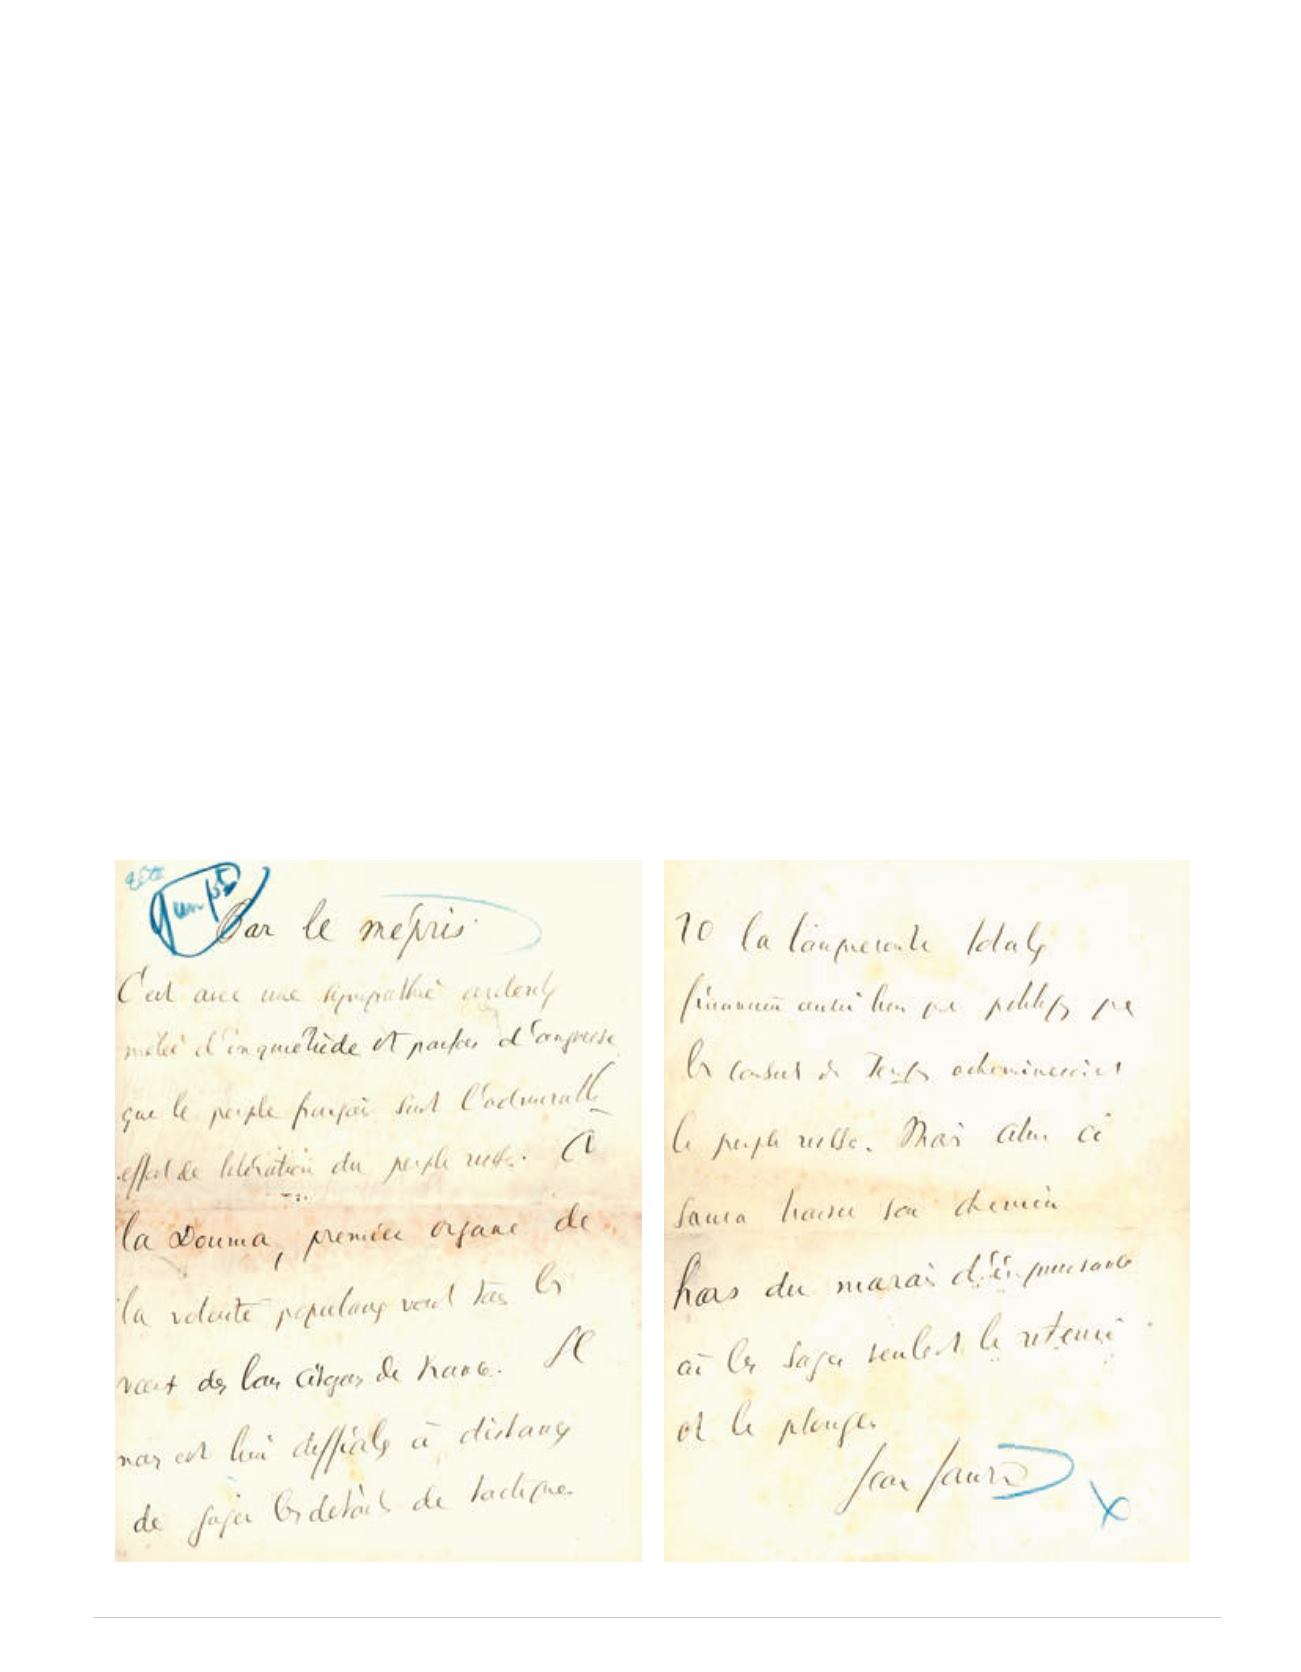 Par le mépris
C'est avec une sympathie ardente
mêlée d'inquiétude et parfois d'angoisse
que le peuple français suit l'admirable
effort de libération du peuple russe. A
la Douma, premier organe de
la volonté populaire vont tous les
vœux des bons citoyens de France. Il
nous est bien difficile à distance
de juger les détails de tactique.
10 la banqueroute totale
financière aussi bien que politique que
les conseils du Temps achemineraient
le peuple russe. Mais celui ci
saura trouver son chemin
hors du marais d'impuissance
où les sages veulent le retenir
et le plonger.
Jean Jaurès